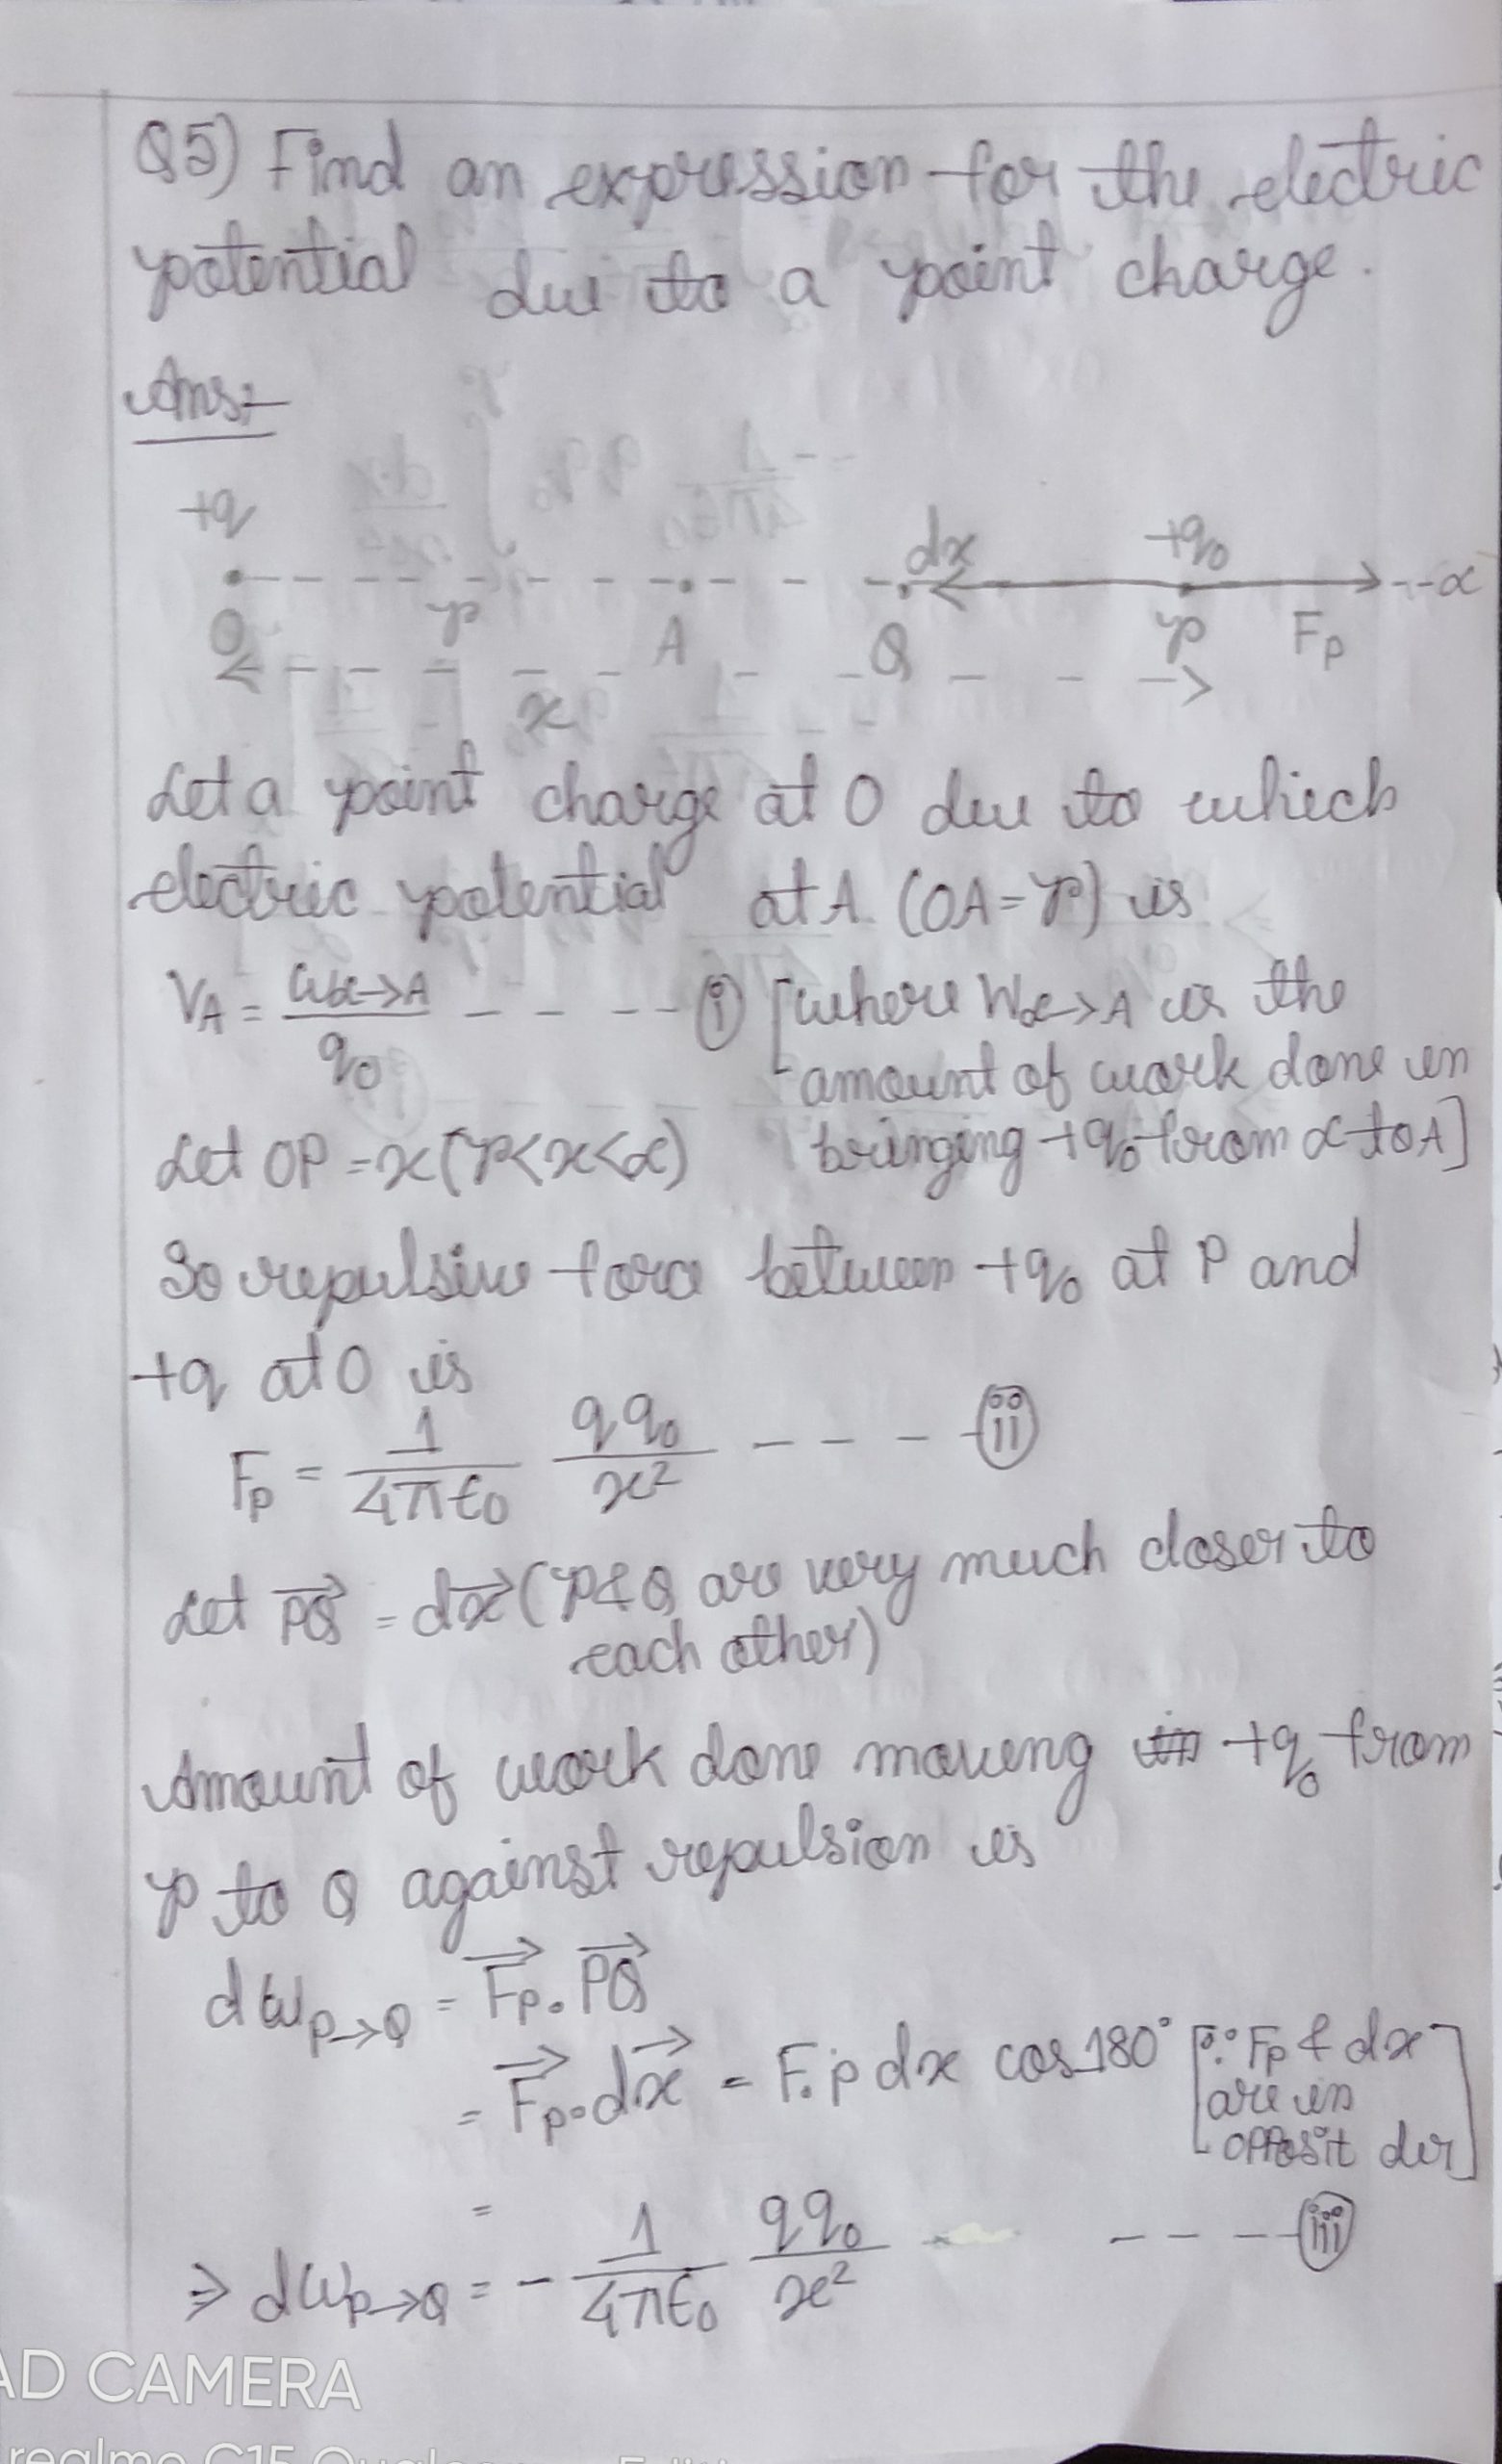 Q5) Find an expression for the electric
potential due to a point charge.
Ans:-
+q dx +q₀
O r A Q P Fp --α
x
Let a point charge at O due to which
electric potential at A (OA = r) is
V_A = Wα→A / q₀ - - - - - (i) [where Wα→A is the
amount of work done in
Let OP = x (r<x<α) bringing +q₀ from α to A]
So repulsive force between +q₀ at P and
+q at O is
Fp = 1/4πε₀ qq₀/x² - - - - (ii)
Let PQ⃗ = dx⃗ (P & Q are very much closer to
each other)
Amount of work done moving +q₀ from
P to Q against repulsion is
dW_P→Q = F⃗p . PQ⃗
= F⃗p . dx⃗ = F.p dx cos 180° [∵ Fp & dx
are in
opposit dir]
=
⇒ dW_P→Q = - 1/4πε₀ qq₀/x² - - - - (iii)
AD CAMERA